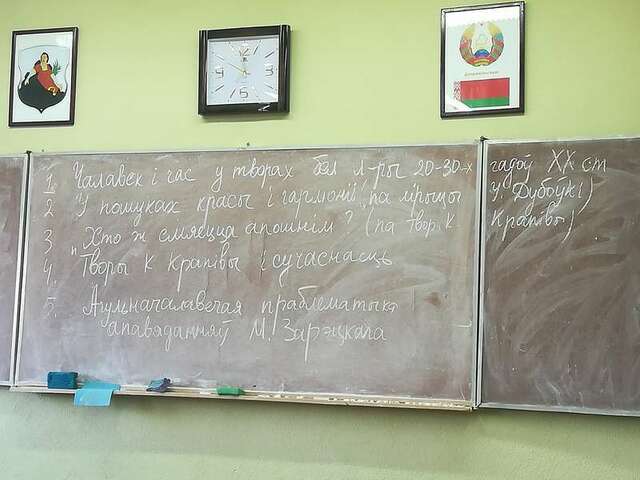 1. Чалавек і час у творах бел л-ры 20-30-х гадоў XX ст
2 У пошуках красы і гармоніі (па лірыцы У. Дубоўкі)
3 "Хто ж смяецца апошнім? (па твор К. Крапівы)
4. Творы К Крапівы і сучаснасць
5. Агульначалавечая праблематыка
апавяданняў М. Зарэцкага